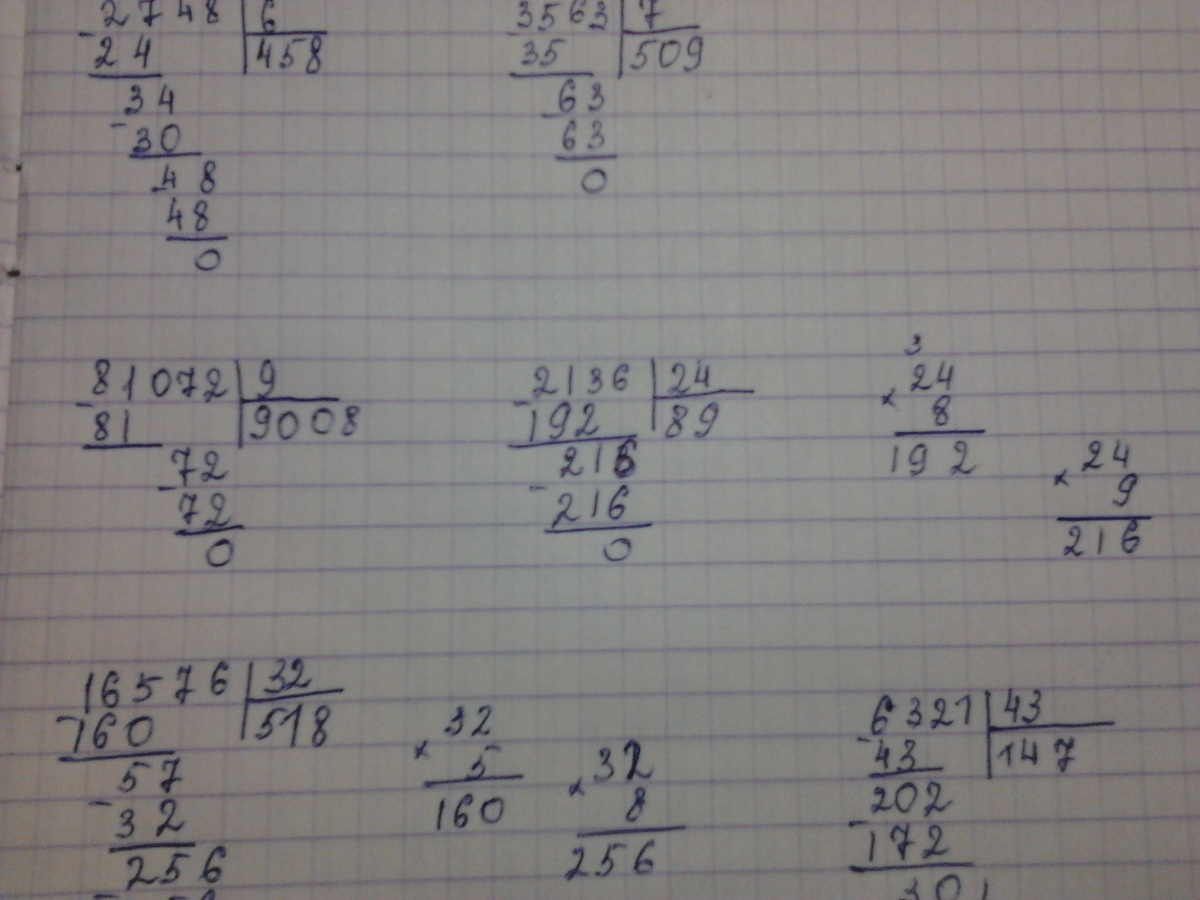 2748 | 6
- 24 | 458
34
- 30
48
48
0
3563 | 7
35 | 509
- 63
63
0
81072 | 9
- 81 | 9008
- 72
72
0
2136 | 24
- 192 | 89
216
- 216
0
3
24
× 8
192
24
× 9
216
16576 | 32
- 160 | 518
57
- 32
256
32
× 5
160
32
× 8
256
6321 | 43
- 43 | 147
202
- 172
301